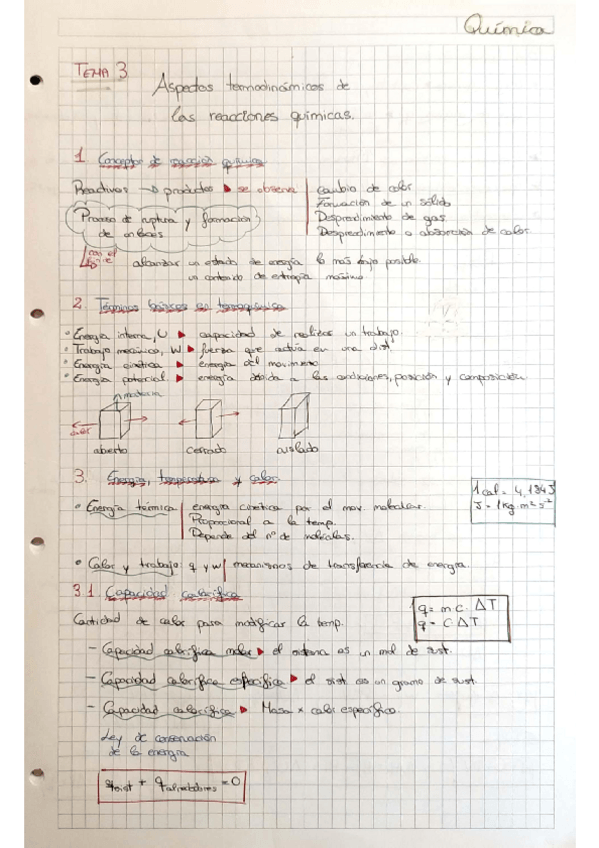 Química
TEMA 3
Aspectos termodinámicos de
las reacciones químicas.
1. Concepto de reacción química
Reactivos → productos ▶ se observa
cambio de color
Formación de un sólido
Desprendimiento de gas
Desprendimiento o absorción de calor
Proceso de ruptura y formación
de enlaces
con el fin de
alcanzar un estado de energía lo más bajo posible.
un contenido de entropía máximo
2. Términos básicos en termoquímica
• Energía interna, U ▶ capacidad de realizar un trabajo.
• Trabajo mecánico, W ▶ fuerza que actúa en una dist.
• Energía cinética ▶ energía del movimiento
• Energía potencial ▶ energía debida a las condiciones, posición y composición.
materia
calor
abierto
cerrado
aislado
3. Energía, temperatura y calor.
1 cal = 4,184 J
J = 1 kg · m² s⁻²
• Energía térmica
energía cinética por el mov. molecular.
Proporcional a la temp.
Depende del nº de moléculas.
• Calor y trabajo: q y w mecanismos de transferencia de energía.
3.1. Capacidad calorífica
Cantidad de calor para modificar la temp.
q = m c · ΔT
q = C · ΔT
– Capacidad calorífica molar ▶ el sistema es un mol de sust.
– Capacidad calorífica específica ▶ el sist es un gramo de sust.
– Capacidad calorífica ▶ Masa × calor específico.
Ley de conservación
de la energía
qsist + qalrededores = 0